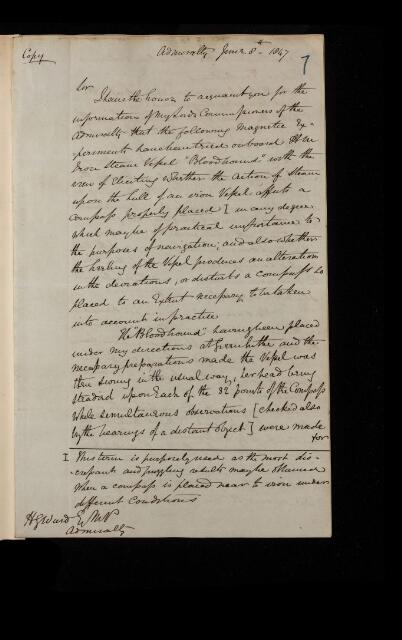 Copy
Admiralty June 8th 1847
7
Sir
I have the honor to acquaint you for the
information of My Lords Commissioners of the
Admiralty that the following Magnetic Ex-
periments have been tried on board H M
Iron Steam Vessel "Bloodhound" with the
view of Eliciting whether the action of Steam
upon the hull of an iron Vessel affects a
Compass properly placed I in any degree
which may be of practical importance to
the purposes of navigation; and also whether
the heeling of the Vessel produces an alteration
in the deviations, or disturbs a compass so
placed to an Extent necessary to be taken
into account in practice
The "Bloodhound" having been placed
under my directions at Greenhithe and the
necessary preparations made the Vessel was
then swung in the usual way, her head being
steadied upon each of the 32 points of the Compass
while simultaneous observations [checked also
by the bearings of a distant object] were made
for
I This term is purposely used as the most dis-
-crepant and puzzling results may be obtained
when a compass is placed near to iron under
different Conditions
H G Ward Esq M P
Admiralty